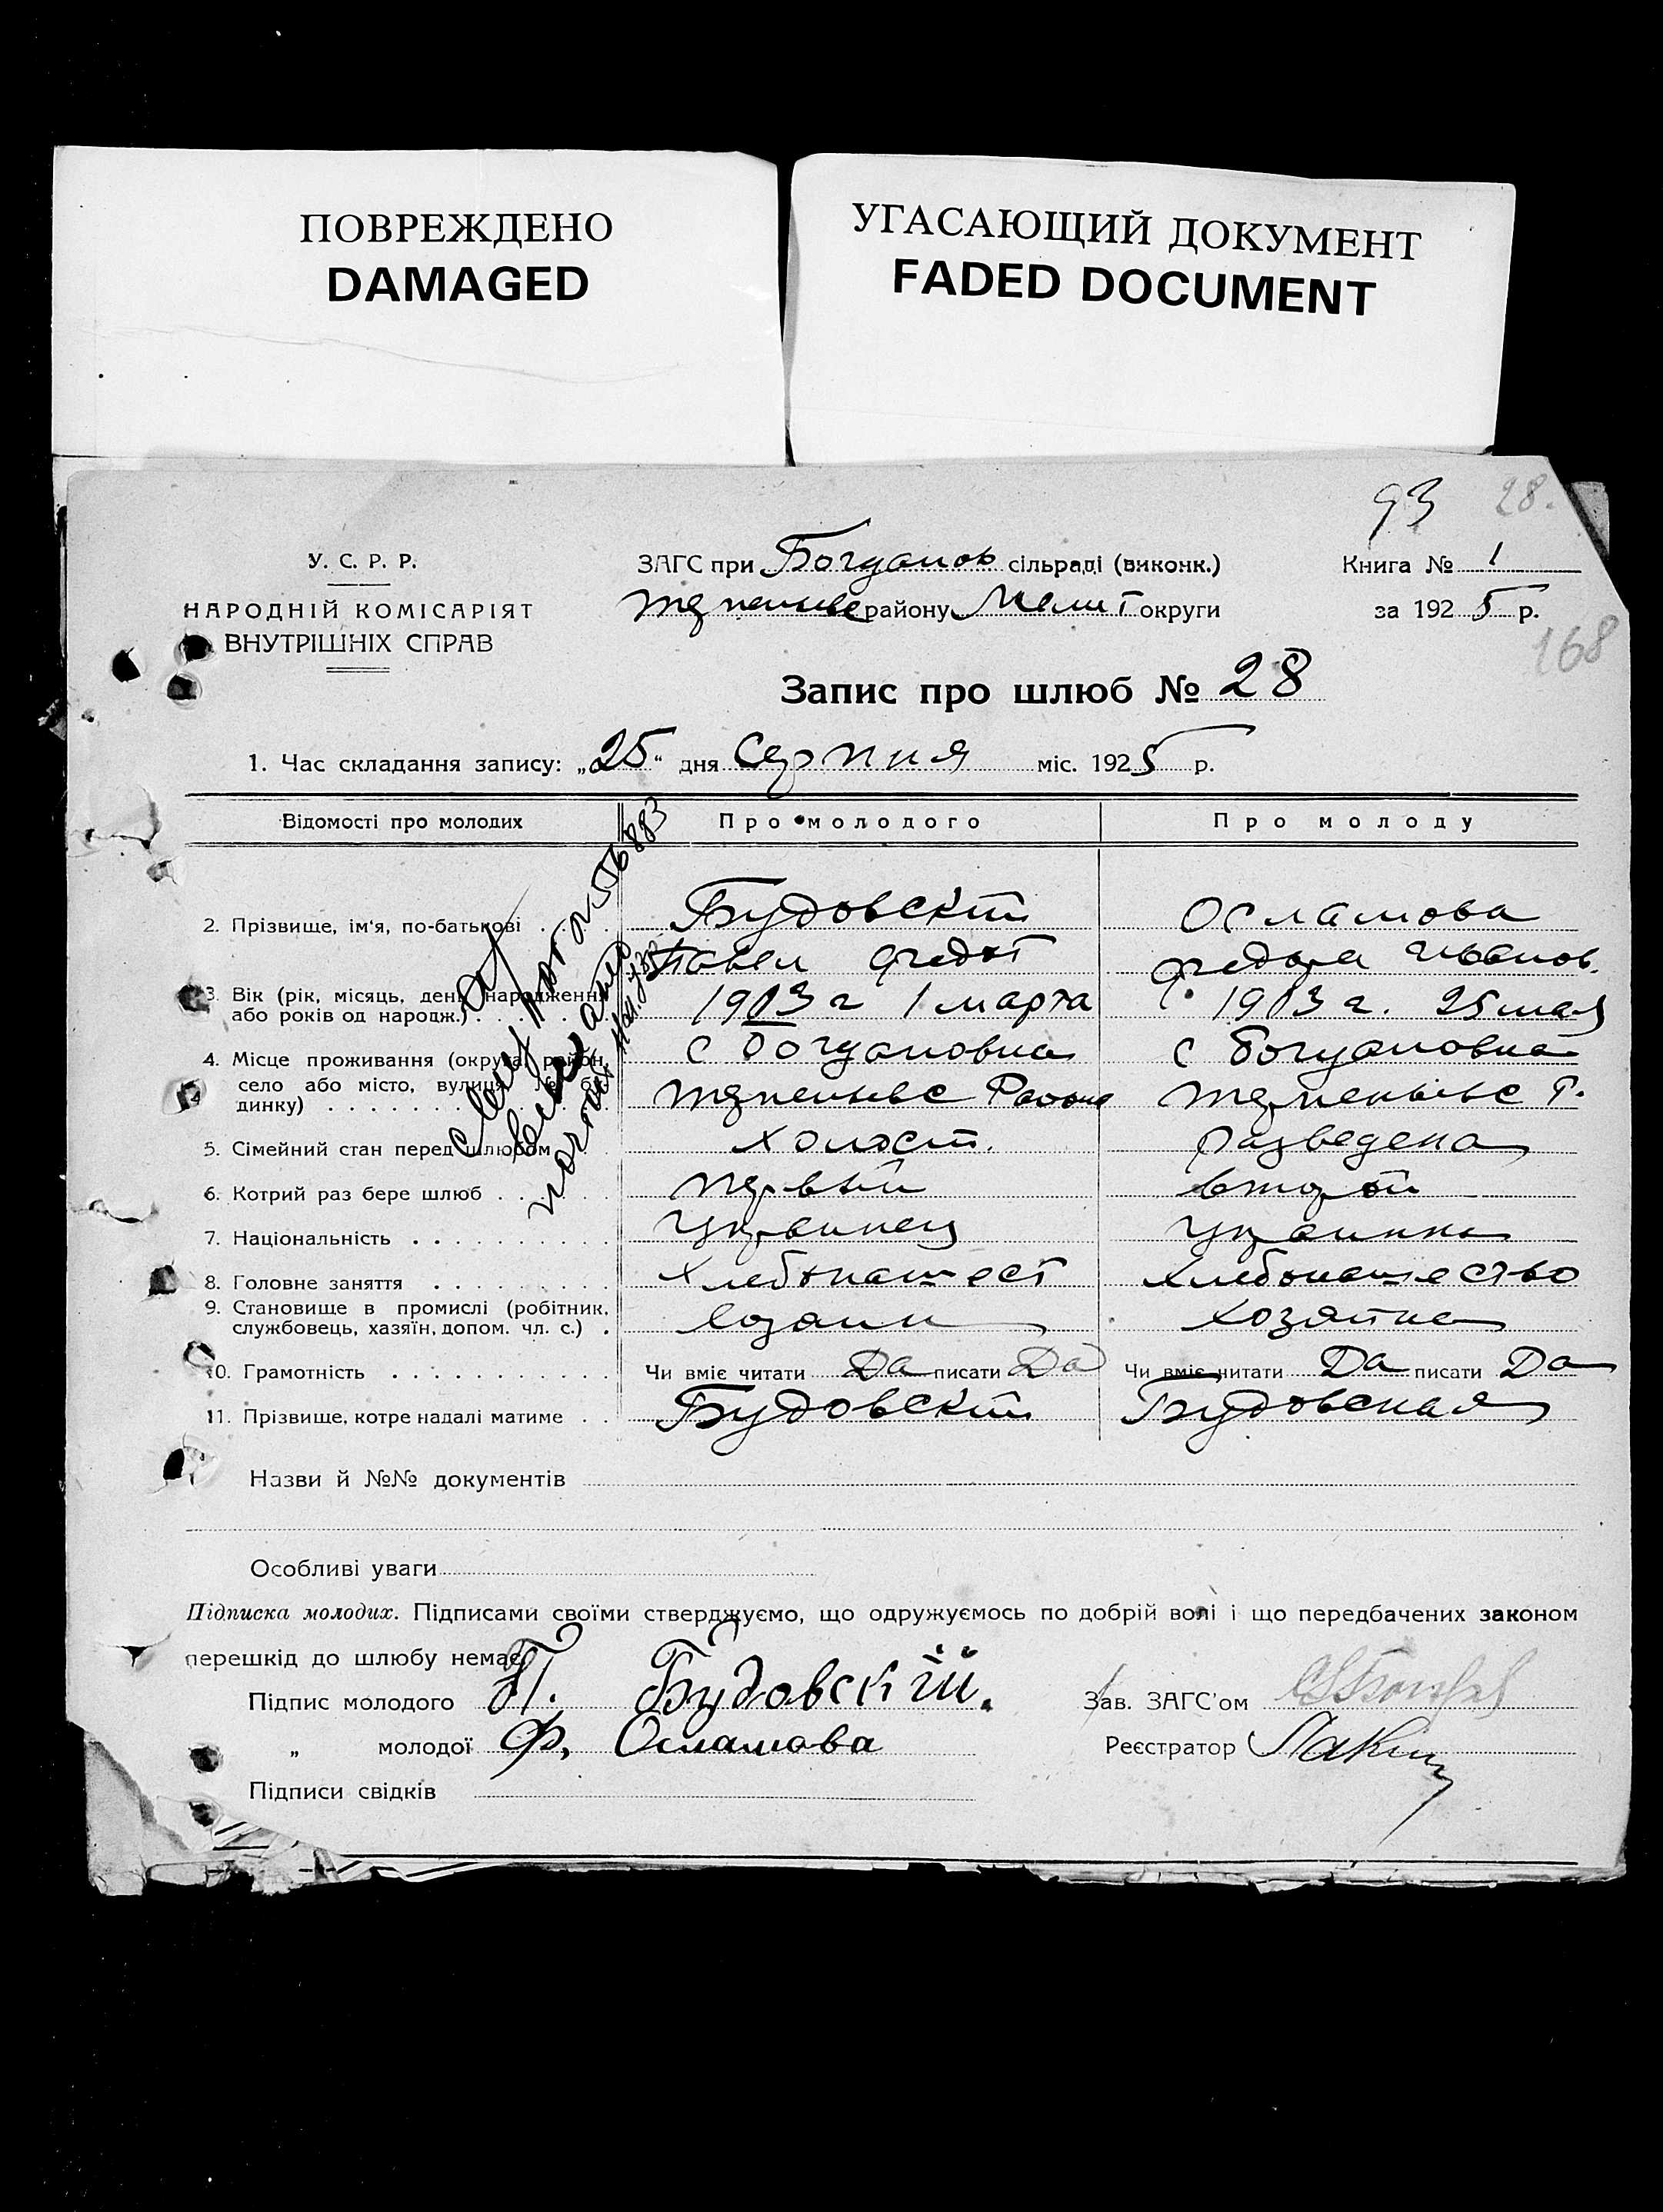 ПОВРЕЖДЕНО
DAMAGED
УГАСАЮЩИЙ ДОКУМЕНТ
FADED DOCUMENT
93 28.
У. С. Р. Р.
НАРОДНІЙ КОМІСАРІЯТ
ВНУТРІШНІХ СПРАВ
ЗАГС при Богданов сільраді (виконк.)
району Мелит округи
Книга № 1
за 1925 р.
168
Запис про шлюб № 28
1. Час складання запису: „25“ дня Серпня міс. 1925 р.
Відомості про молодих Про молодого Про молоду
2. Прізвище, ім'я, по-батькові . Будовский Осламова
Павел Федот Федора Иванов.
3. Вік (рік, місяць, день народження або років од народж.) . 1903 г 1 марта 1903 г. 25 мая
4. Місце проживання (округа, район, село або місто, вулиця, № будинку) . . . . . . с Богдановка с Богдановка
5. Сімейний стан перед шлюбом Холост. разведена
6. Котрий раз бере шлюб . . . первый второй
7. Національність . . . . . . . . . Украинец Украинка
8. Головне заняття . . . . . . . . Хлебопашест Хлебопашество
9. Становище в промислі (робітник, службовець, хазяїн, допом. чл. с.) . Хозяин Хозяйка
10. Грамотність . . . . . . . . . . . Чи вміє читати Да писати Да Чи вміє читати Да писати Да
11. Прізвище, котре надалі матиме . . Будовский Будовская
Назви й №№ документів
Особливі уваги
Підписка молодих. Підписами своїми стверджуємо, що одружуємось по добрій волі і що передбачених законом
перешкід до шлюбу немає.
Підпис молодого П. Будовскій. Зав. ЗАГС'ом
„ молодої Ф. Осламова Реєстратор
Підписи свідків